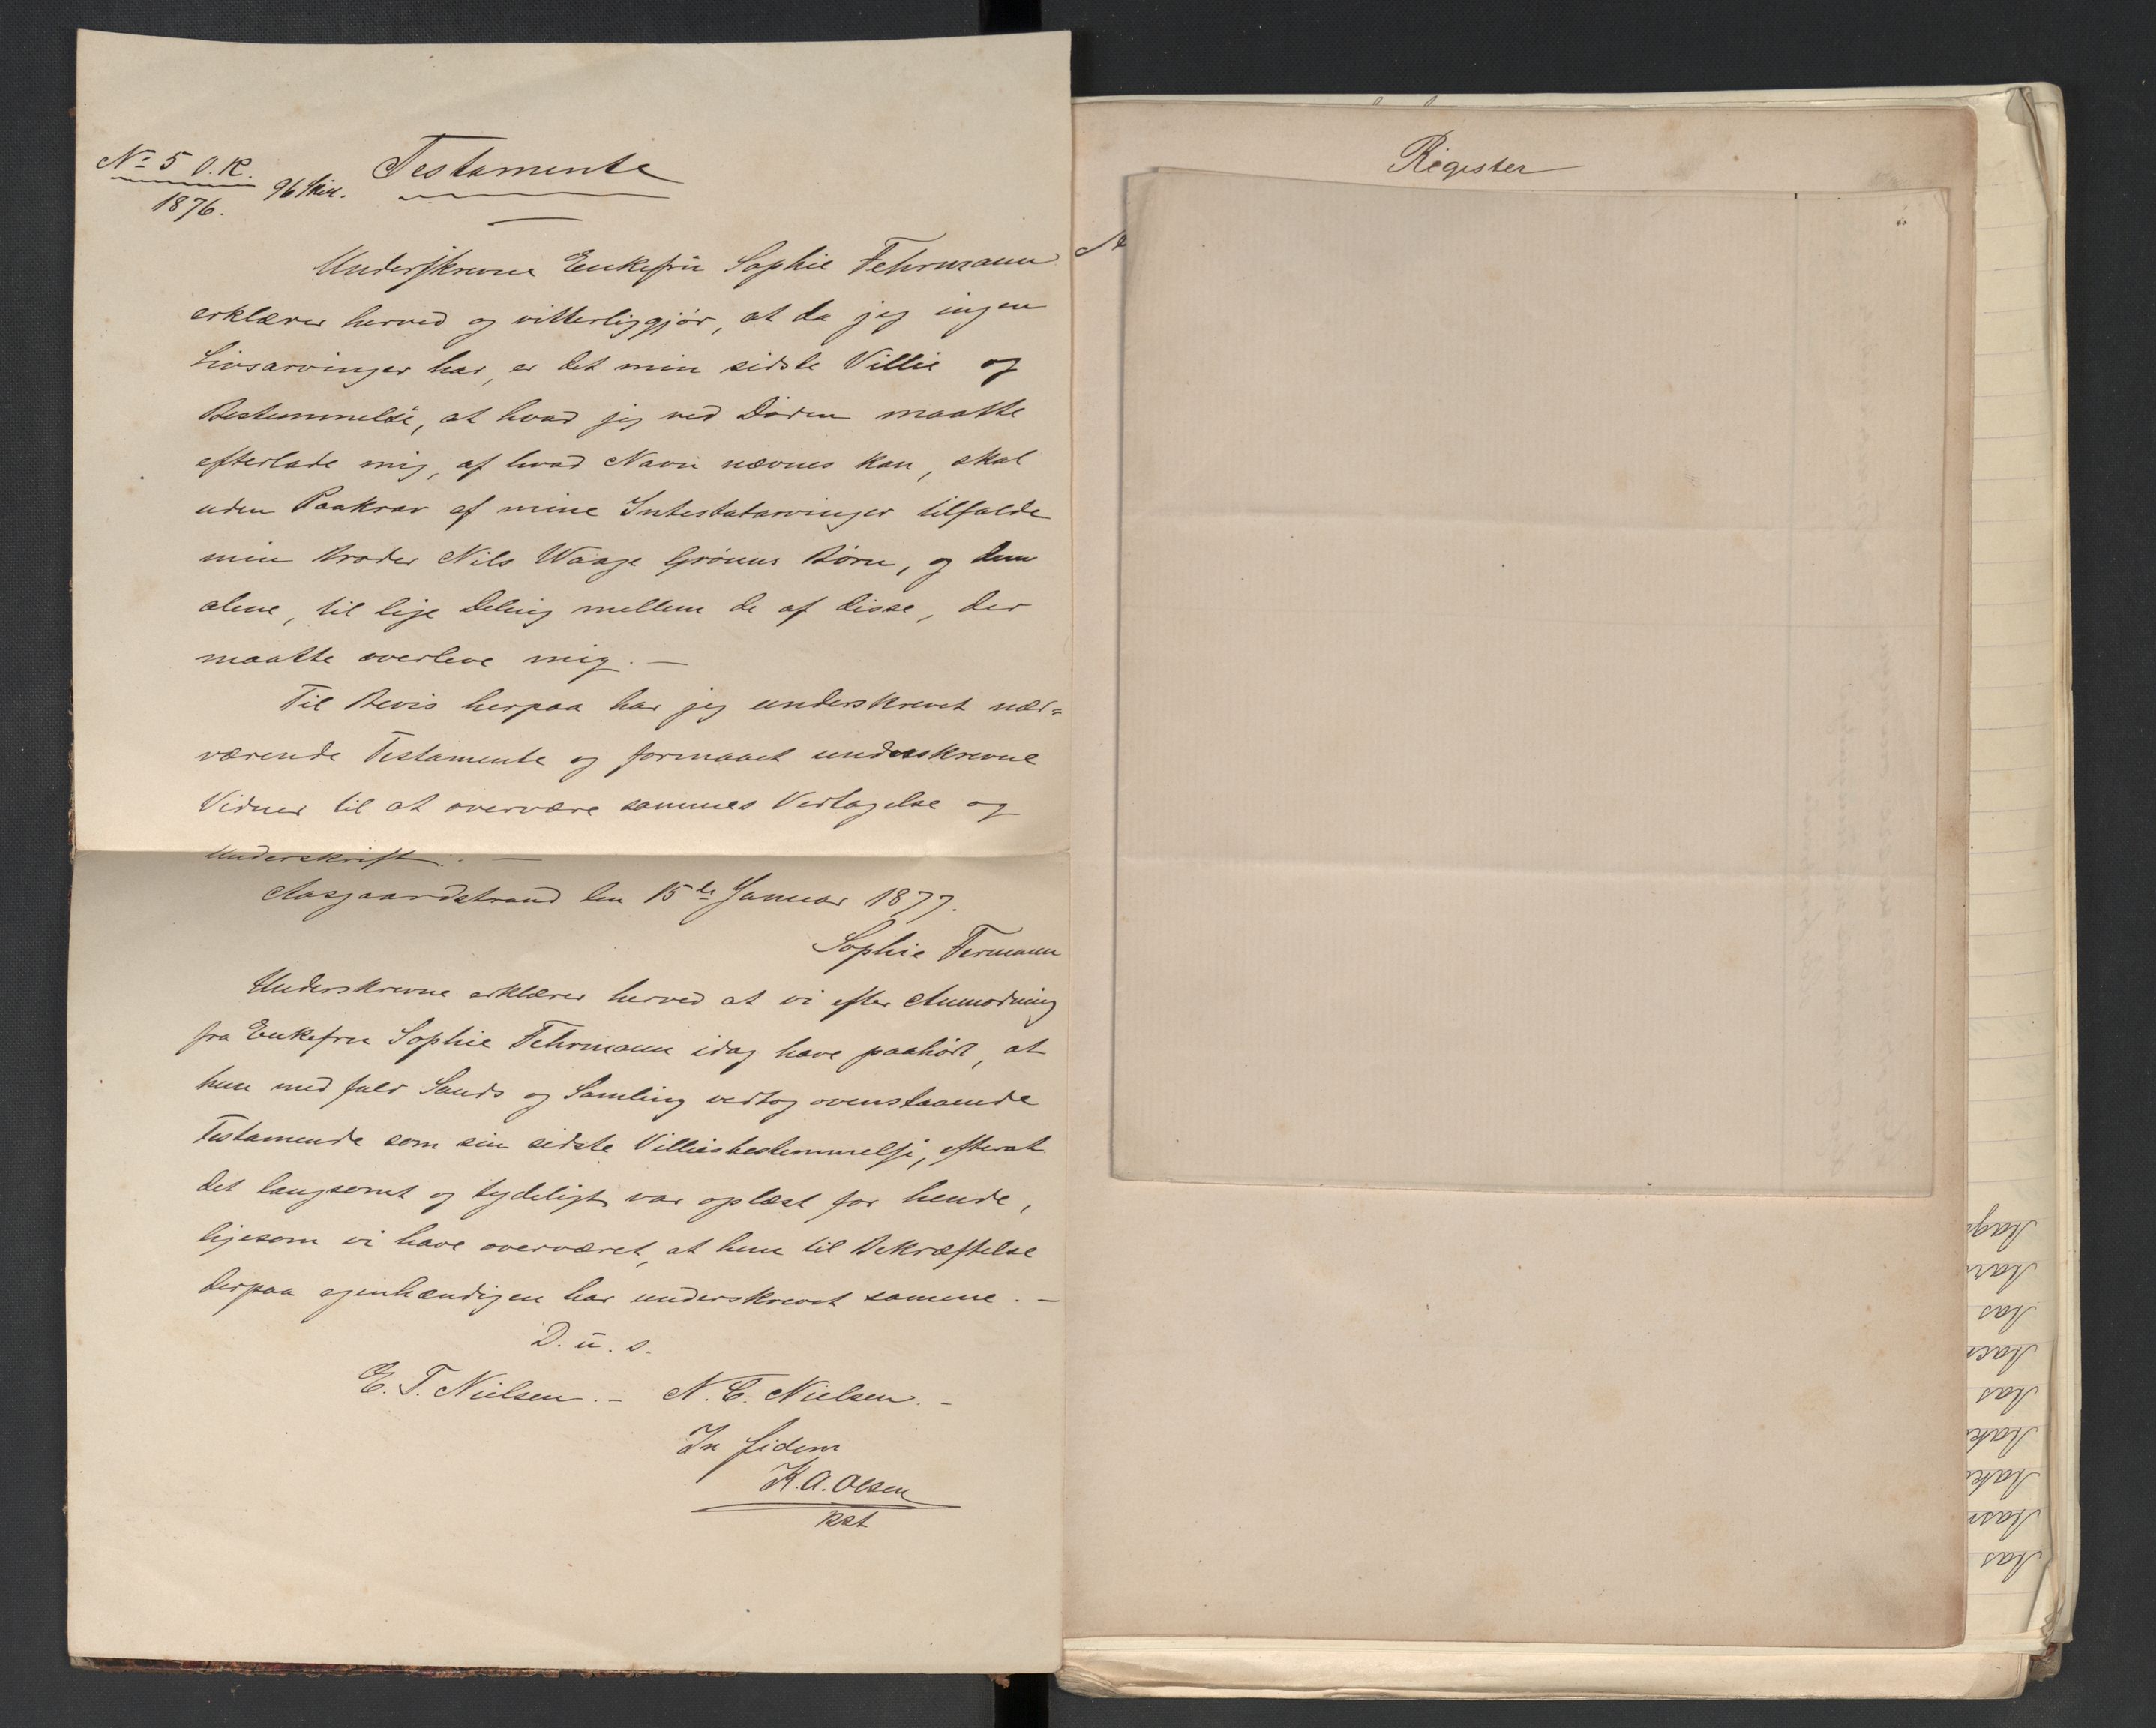 Testamente
No 5 O.K. 96 Skill.
1876.
Underskrevne Enkefrü Sophie Fehrmann
erklærer herved og vitterliggjör, at da jeg ingen
Livsarvinger har, er det min sidste Villie og
Bestemmelse, at hvad jeg ved Döden maatte
efterlade mig, af hvad Navn nævnes kan, skal
uden Paakrav af mine Intestatarvinger tilfalde
min Broder Nils Waage Grönns Börn, og dem
alene, til lige Deling mellem de af disse, der
maatte overleve mig. —
Til Bevis herpaa har jeg underskrevet nær=
værende Testamente og formaaet underskrevne
Vidner til at overvære sammes Vedtagelse og
Underskrift. —
Aasgaardstrand den 15de Januar 1877.
Sophie Fermann
Underskrevne erklærer herved at vi efter Anmodning
fra Enkefru Sophie Fehrmann idag have paahört, at
hun med fuld Sands og Samling vedtog ovenstaaende
Testamende som sin sidste Villiesbestemmelse, efterat
det langsomt og tydeligt var oplæst for hende,
ligesom vi have overværet, at hun til Bekræftelse
derpaa egenhændigen har underskrevet samme. —
D. ü. s.
E. T. Nielsen. — N. C. Nielsen. —
In fidem
K. A. Olsen
Kst
Register
Aas
Aas
Aas